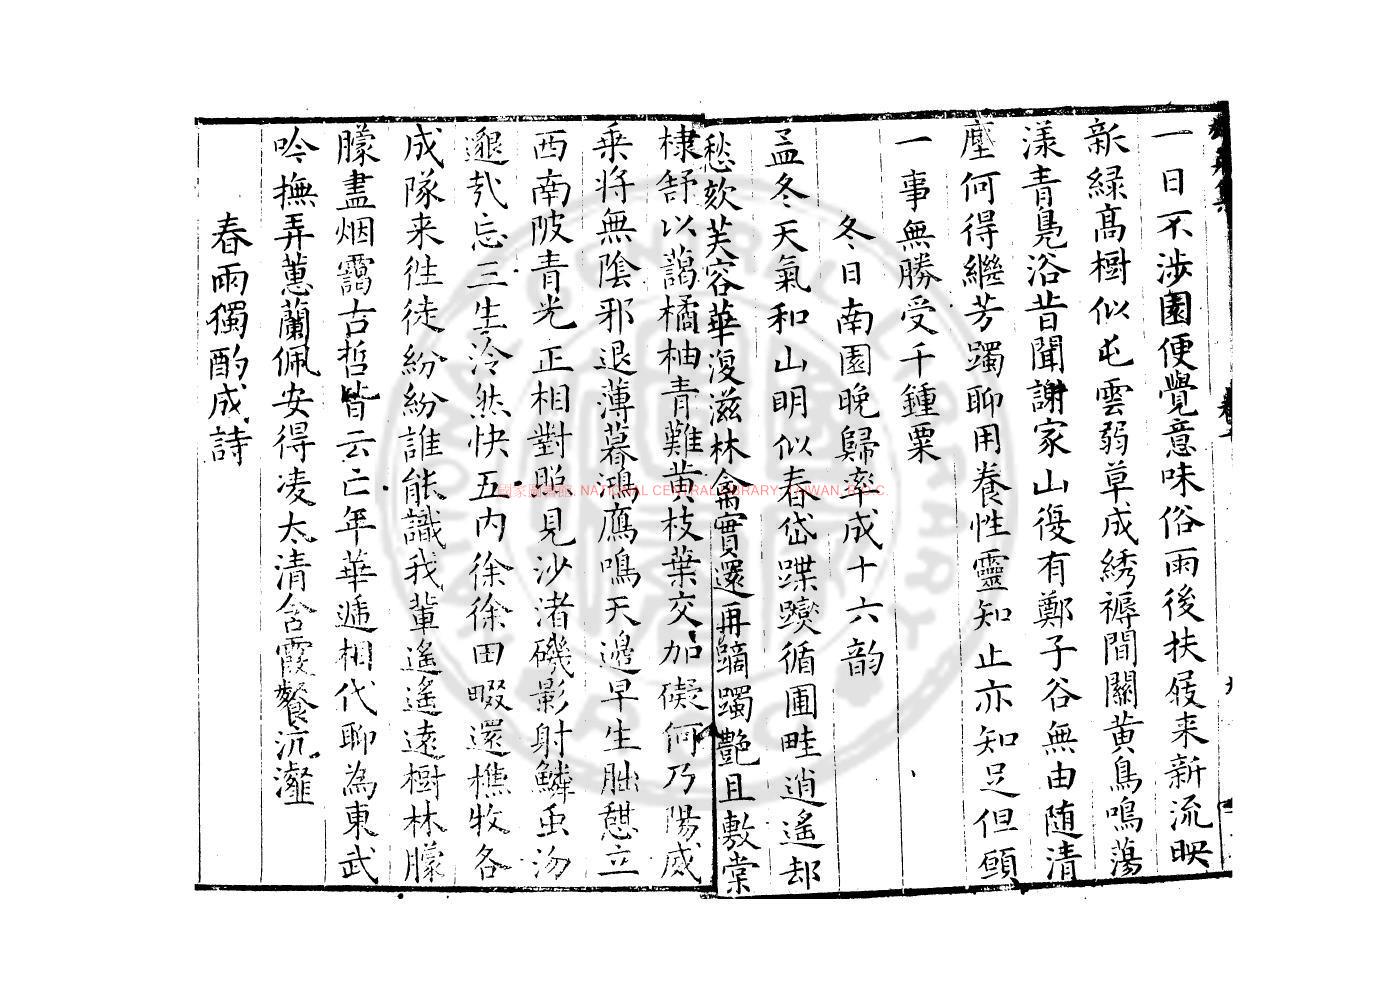 一日不涉園便覺意味俗雨後扶屐来新流映
新緑髙樹似屯雲弱草成綉褥間關黄鳥鳴蕩
漾青鳧浴昔聞謝家山復有鄭子谷無由随清
塵何得繼芳躅聊用養性靈知止亦知足但願
一事無勝受千鍾粟
冬日南園晚歸率成十六韵
孟冬天氣和山明似春岱蹀躞循圃畦逍遙却
愁欬芙容華復滋林禽實還再躑躅艶且敷棠
棣舒以藹橘柚青難黄枝葉交加礙何乃陽威
乗将無隂邪退薄暮鴻鴈鳴天邊早生朏憇立
西南陂青光正相對昭見沙渚磯影射鱗虫汤
邈𢦏忘三生泠然快五内徐徐田畷還樵牧各
成隊来徃徒紛紛誰能識我軰遥遥遠樹林朦
朦盡烟靄古哲皆云亡年華遞相代聊為東武
吟撫弄蕙蘭佩安得凌太清含霞餐沆瀣
春雨獨酌成詩
國家圖書館 NATIONAL CENTRAL LIBRARY, TAIWAN, R.O.C.